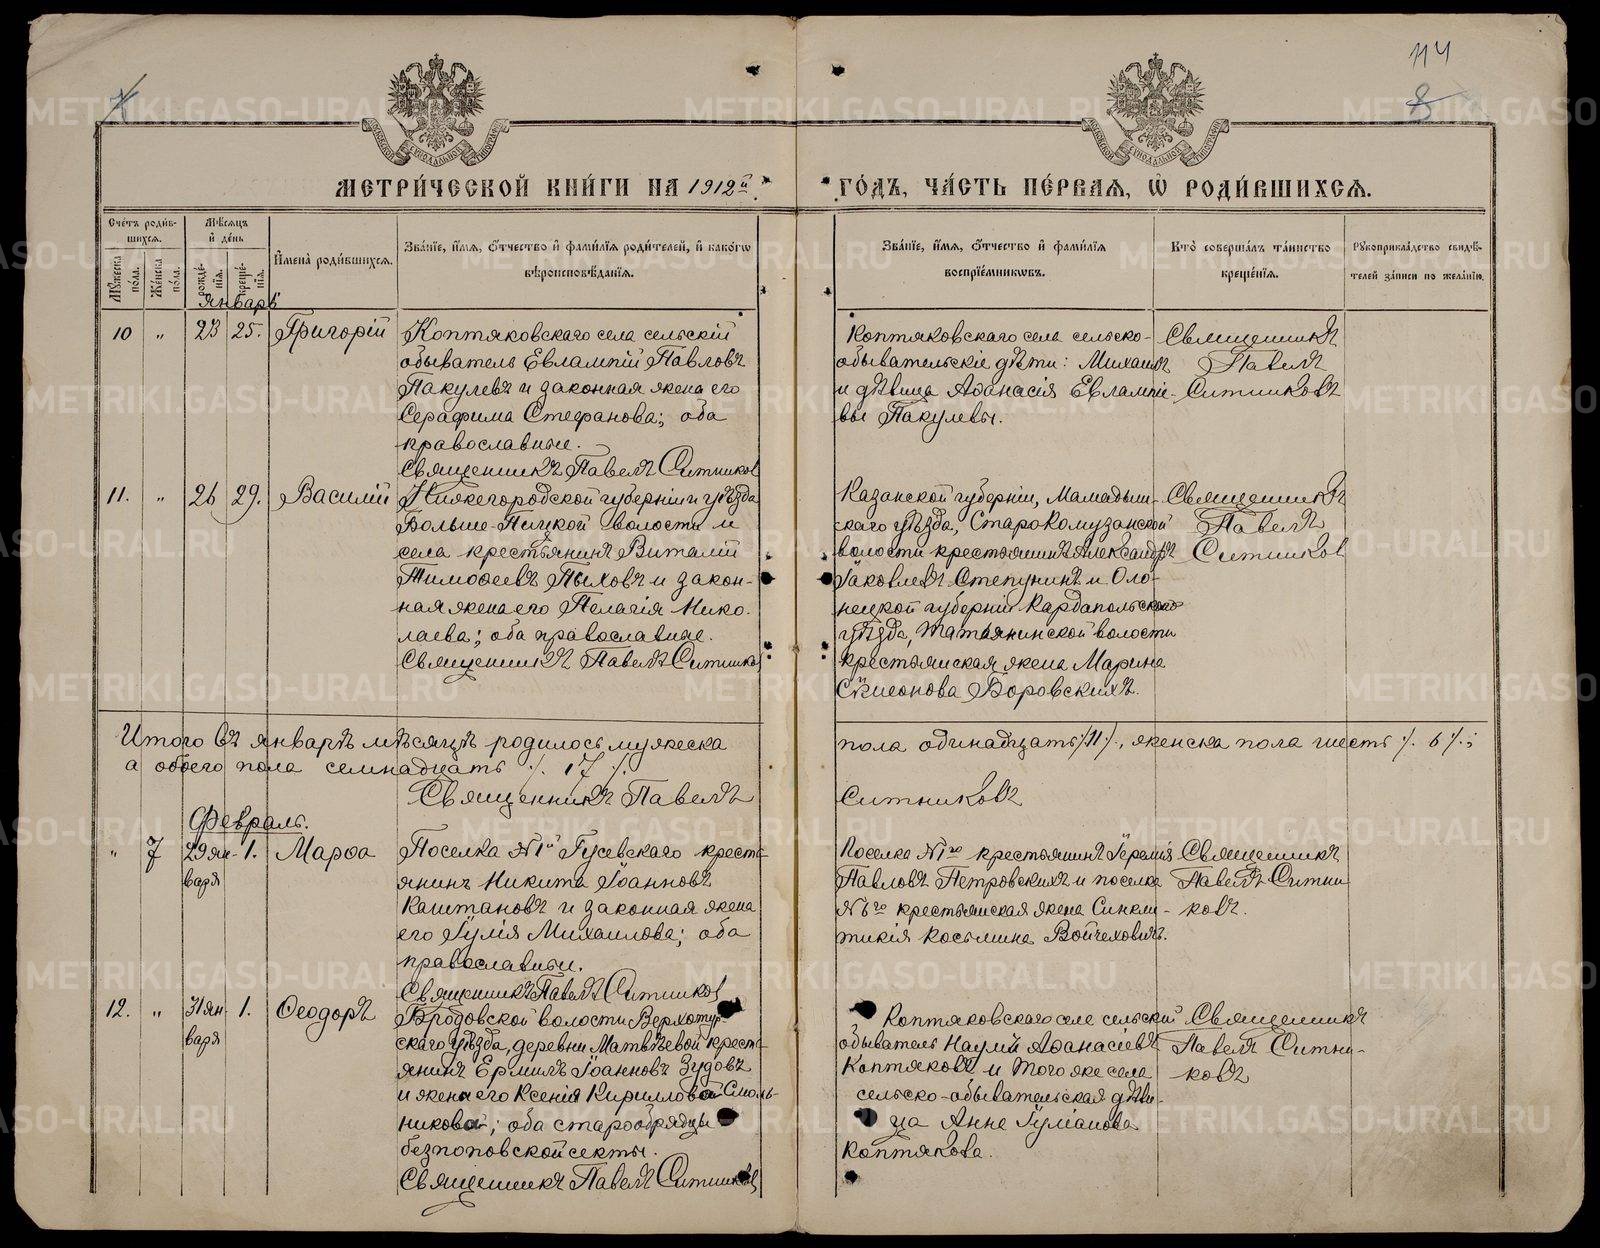 114
8
МЕТРИ́ЧЕСКОЙ КНИ́ГИ НА 1912й
ГО́ДЪ, ЧА́СТЬ ПЕ́РВАЯ, Ѡ҆ РОДИ́ВШИХСЯ.
Сче́тъ роди́в-
шихся.
Му́жеска по́ла.
Же́нска по́ла.
Мѣ́сяцъ
и҆ де́нь
рожде́-
нїя.
креще́-
нїя.
И҆мена̀ роди́вшихся.
Зва́нїе, и҆́мя, ѻ҆́тчество и҆ фами́лїя роди́телей, и҆ како́гѡ
вѣроисповѣ́данїя.
Зва́нїе, и҆́мя, ѻ҆́тчество и҆ фами́лїя
воспрїе́мникѡвъ.
Кто̀ соверша́лъ та́инство
креще́нїя.
Рꙋкоприкла́дство свидѣ́-
телей за́писи по жела́нїю.
Январь
10 „ 23 25. Григорій
Коптяковскаго села сельскій
обыватель Евлампій Павловъ
Пакулевъ и законная жена его
Серафима Стефанова; оба
православные.
Священникъ Павелъ Ситников
Коптяковскаго села сельско-
обывательскіе дѣти: Михаилъ
и дѣвица Афанасія Евлампіе-
вы Пакулевы.
Священникъ
Павелъ
Ситниковъ
11. „ 26 29. Василій
Нижегородской губерніи и уѣзда
Больше-Пицкой волости и
села крестьянинъ Виталій
Тимофеевъ Пыховъ и закон-
ная жена его Пелагія Нико-
лаева; оба православные.
Священникъ Павелъ Ситников
Казанской губерніи, Мамадыш-
скаго уѣзда, Старокомузанской
волости крестьянинъ Александръ
Іаковлевъ Степунинъ и Оло-
нецкой губерніи Каргапольскаго
уѣзда, Татьянинской волости
крестьянская жена Марина
Сѵмеонова Боровскихъ.
Священникъ
Павелъ
Ситников
Итого въ январѣ мѣсяцѣ родилось мужеска
пола одинадцать /.11/., женска пола шесть /. 6 /.;
а обоего пола семнадцать /. 17 /.
Священникъ Павелъ
Ситниковъ
Февраль.
„ 7 29 ян-
варя
1. Марѳа
Поселка № 1й Гусевскаго кресть-
янинъ Никита Іоанновъ
Каштановъ и законная жена
его Іулія Михаилова; оба
православные.
Священникъ Павелъ Ситников
Поселка № 1го крестьянинъ Іеремія
Павловъ Петровскихъ и поселка
№ 6го крестьянская жена Синкли-
тикія Косьмина Войчеховичъ.
Священникъ
Павелъ Ситни-
ковъ.
12. „ 31 ян-
варя
1. Ѳеодоръ
Бродовской волости Верхотур-
скаго уѣзда, деревни Матвѣевой крест-
янинъ Ермилъ Іоанновъ Зудовъ
и жена его Ксенія Кириллова Смоль-
никова; оба старообрядцы
безпоповской секты.
Священникъ Павелъ Ситников
Коптяковскаго села сельскій
обыватель Наумъ Афанасіевъ
Коптяковъ и того же села
сельско-обывательская дѣви-
ца Анна Іуліанова
Коптякова.
Священникъ
Павелъ Ситни-
ковъ
METRIKI.GASO-URAL.RU